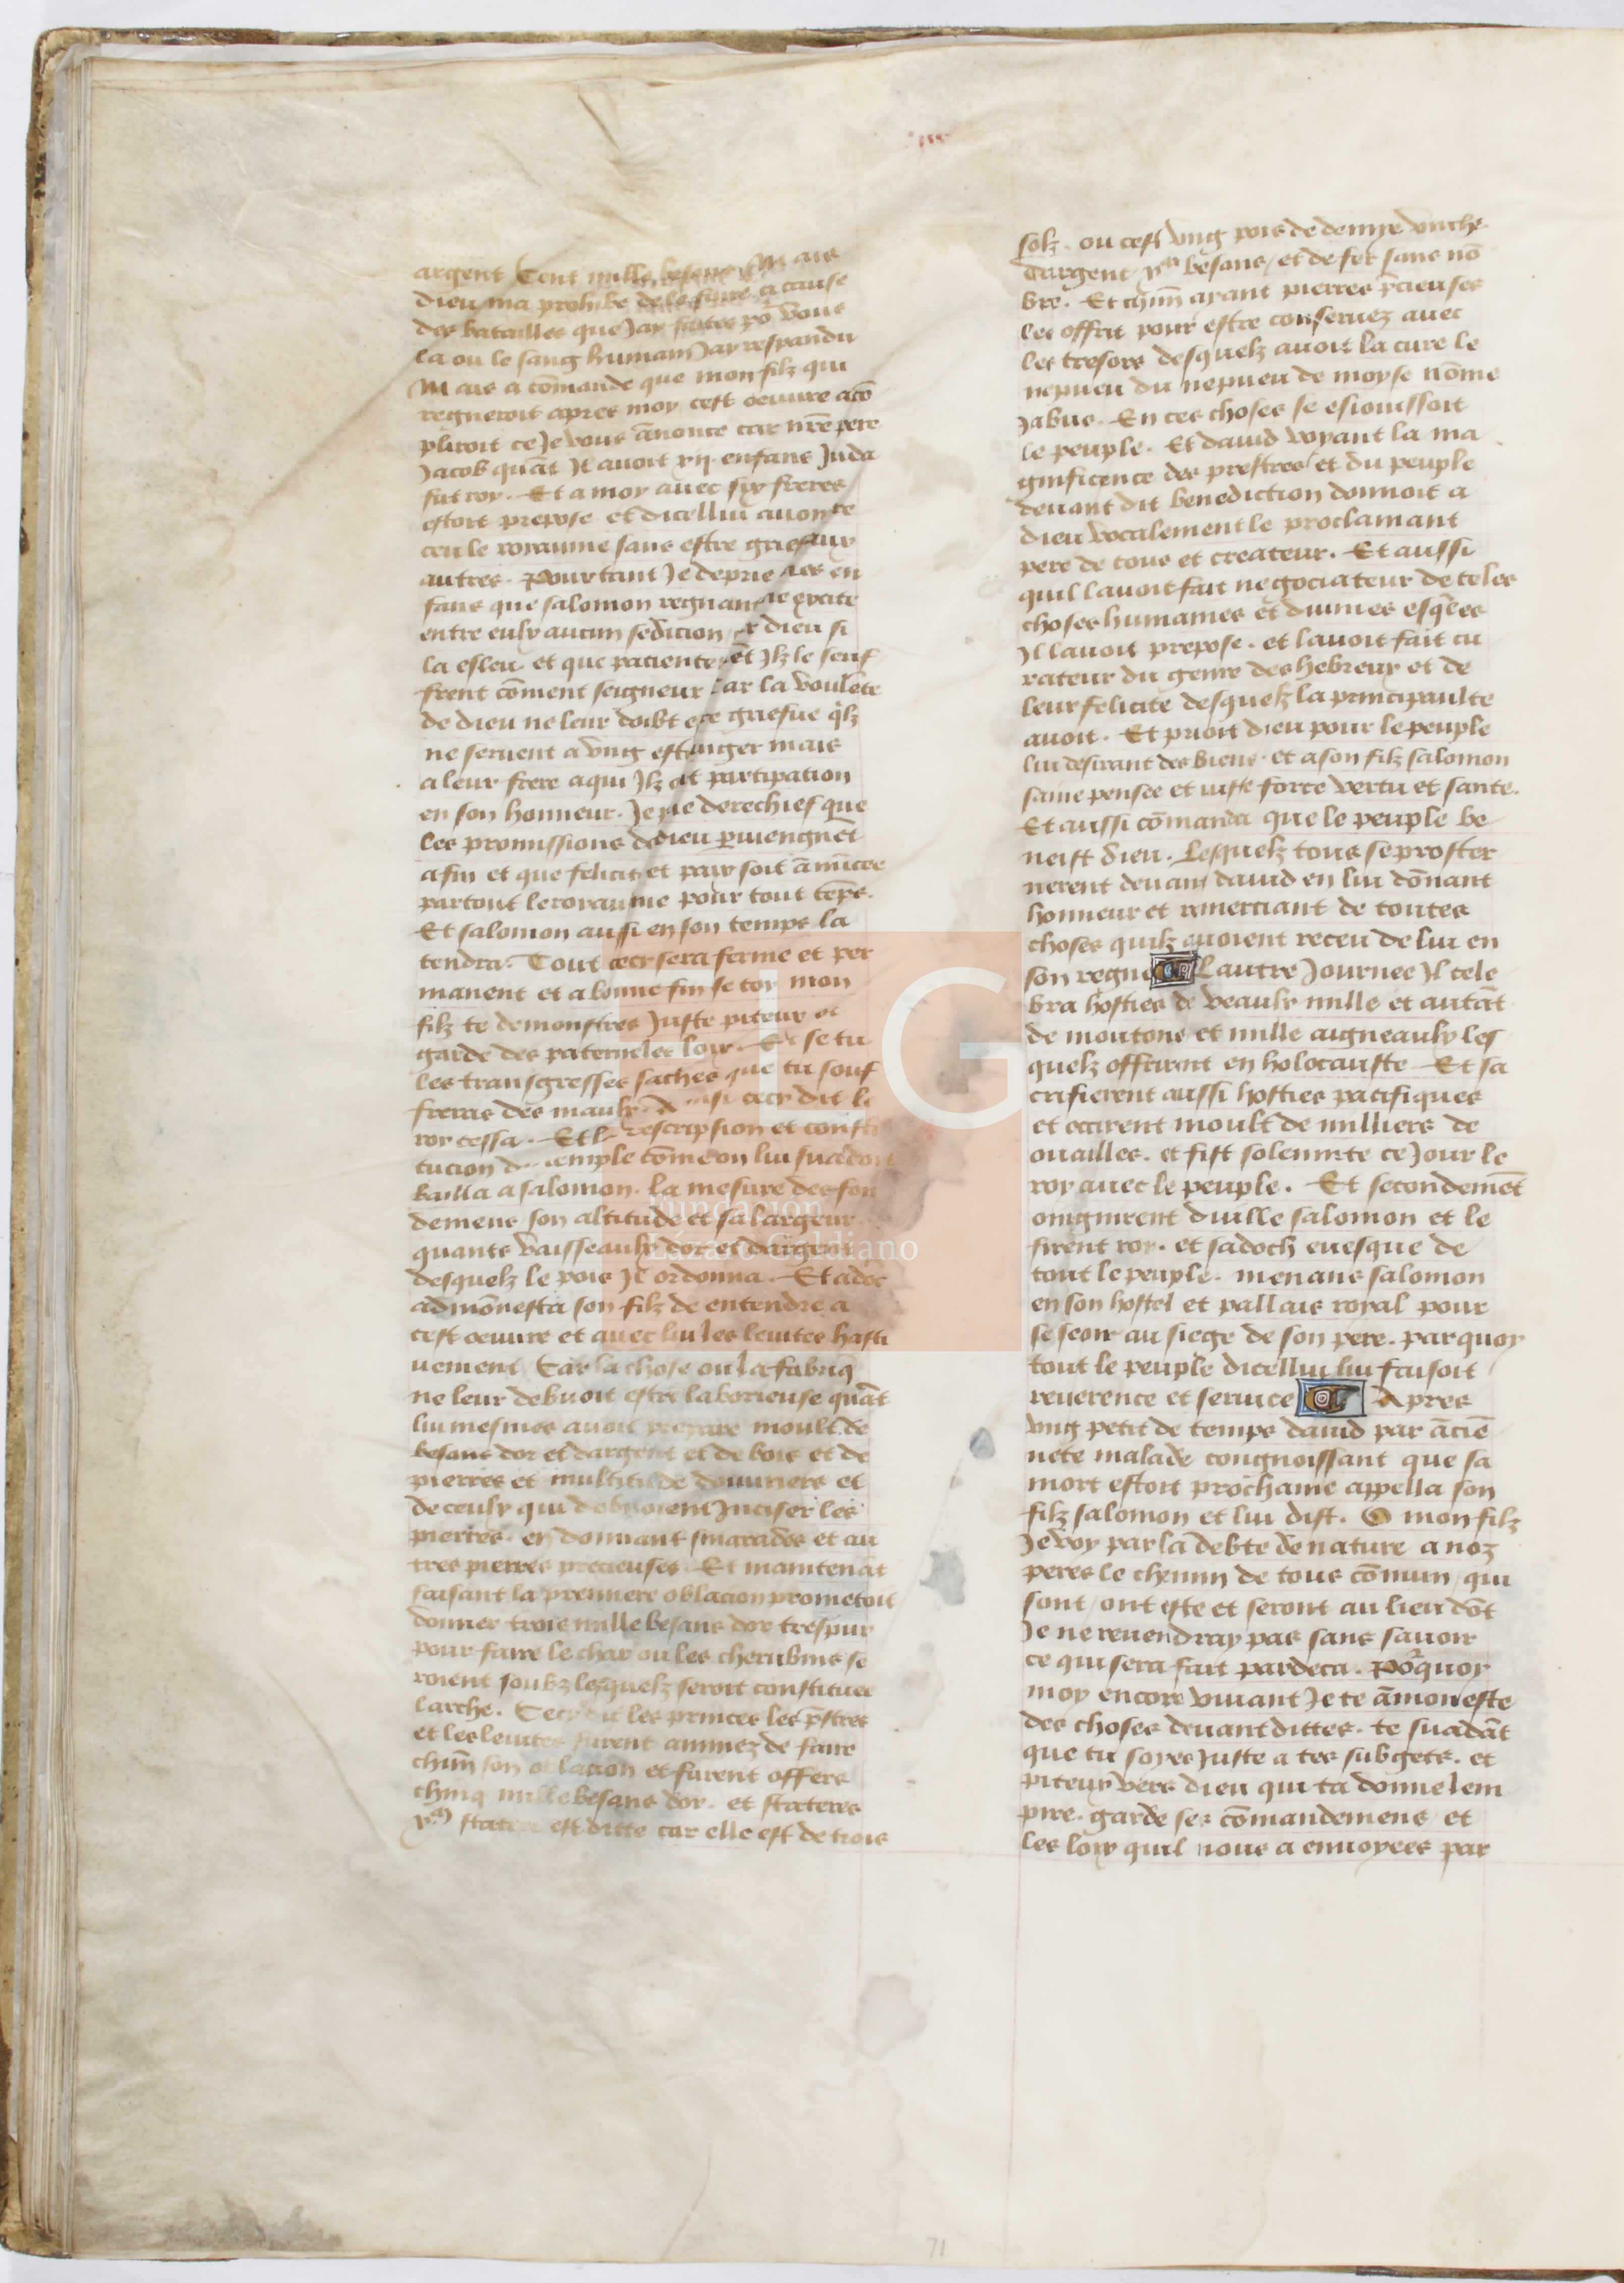 argent Cent mille besans Mais
dieu ma prohibe de le faire a cause
des batailles que Jay faites po᷑ vous
la ou le sang humain Jay respandu
Mais a cōmande que mon filz qui
regneroit apres moy cest oeuure acō
pliroit ce Je vous ānonce car nr̄e pere
Jacob quāt Jl auoit xij. enfans Juda
fut roy. Et a moy auec six freres
estoit prepose et dicellui auont re
ceu le royaume sans estre grief aux
autres. Pourtant Je deprie mes en
fans que salomon regnant ne excite
entre eulx aucun sedicion dieu si
la esleu et que pacientemēt Jlz le seuf
frent cōment seigneur Car la voulēte
de dieu ne leur doibt estre griefue q̄lz
ne seruent a vng estrangier mais
a leur frere a qui Jlz ōt partipation
en son honneur. Je prie derechief que
les promissions de dieu ꝑuiengnēt
afin et que felicite et paix soit ānūcee
partout le royaume pour tout tēps.
Et salomon aussi en son temps la
tendra. Tout cecy sera ferme et per
manent et a bonne fin se toy mon
filz te demonstres Juste piteux et
garde des paternelles loix. Et se tu
les transgresses saches que tu souf
freras des maulx. Ainsi cecy dit le
roy cessa. Et la descripsion et consti
tucion du temple cōme on lui suadoit
bailla a salomon. la mesure des fon
demens son altitude et sa largeur
quants vaisseaulx dor et dargent
desquelz le pois Jl ordonna. Et adōc
admōnesta son filz de entendre a
cest oeuure et auec lui les leuites hasti
uement Car la chose ou la fabriq̄
ne leur debuoit estre laborieuse quāt
lui mesmes auoit prepare moult de
besans dor et dargent et de bois et de
pierres et multitude douuriers et
de ceulx qui debuoient Jnciser les
pierres. en donnant smarades et au
tres pierres precieuses. Et maintenāt
faisant la premiere oblacion prometoit
donner trois mille besans dor trespur
pour faire le char ou les cherubins se
roient soubz lesquelz seroit constituee
larche. Cecy dit les princes les p̄stres
et les leuites furent animez de faire
chūn son oblacion et furent offers
chinq mille besans dor. et stateres
xᵐ statere est ditte car elle est de trois
solz. ou cest vng pois de demye vnche
dargent xᵐ besans / et de fer sans nō
bre. Et chūn ayant pierres p̄cieuses
les offrit pour estre conseruez auec
les tresors desquelz auoit la cure le
nepueu du nepueu de moyse nōme
Jabus. En ces choses se esiouissoit
le peuple. Et dauid voyant la ma
gnificence des prestres et du peuple
deuant dit benediction donnoit a
dieu vocalement le proclamant
pere de tous et createur. Et aussi
quil lauoit fait negociateur de teles
choses humaines et diuines esq̄les
Jl lauoit prepose. et lauoit fait cu
rateur du genre des hebreux et de
leur felicite desquelz la principaulte
auoit. Et prioit dieu pour le peuple
lui desirant des biens. et a son filz salomon
saine pensee et iuste force vertu et sante.
Et aussi cōmanda que le peuple be
neist dieu. Lesquelz tous se proster
nerent deuant dauid en lui dōnant
honneur et remerciant de toutes
choses quilz auoient receu de lui en
son regne Lautre Journee Jl cele
bra hosties de veaulx mille et autāt
de moutons et mille aigneaulx les
quelz offrirent en holocauste. Et sa
crifierent aussi hosties pacifiques
et occirent moult de milliers de
ouailles. et fist solennite ce Jour le
roy auec le peuple. Et secondemēt
oingnirent duille salomon et le
firent roy. et sadoch euesque de
tout le peuple. menans salomon
en son hostel et pallais royal pour
se seoir au siege de son pere. parquoy
tout le peuple dicellui lui faisoit
reuerence et seruice Apres
vng petit de temps dauid par āciē
nete malade congnoissant que sa
mort estoit prochaine appella son
filz salomon et lui dist. O mon filz
Je voy par la debte de nature a noz
peres le chemin de tous cōmun / qui
sont / ont este et seront au lieu dōt
Je ne reuendray pas sans sauoir
ce qui sera fait pardeca. Po᷑quoy
moy encore viuant Je te āmoneste
des choses deuant dittes. te suadāt
que tu soyes Juste a tes subgets. et
piteux vers dieu qui ta donne lem
pire. garde ses cōmandemens et
les loix quil nous a enuoyees par
FLG
Fundación
Lázaro Galdiano
71